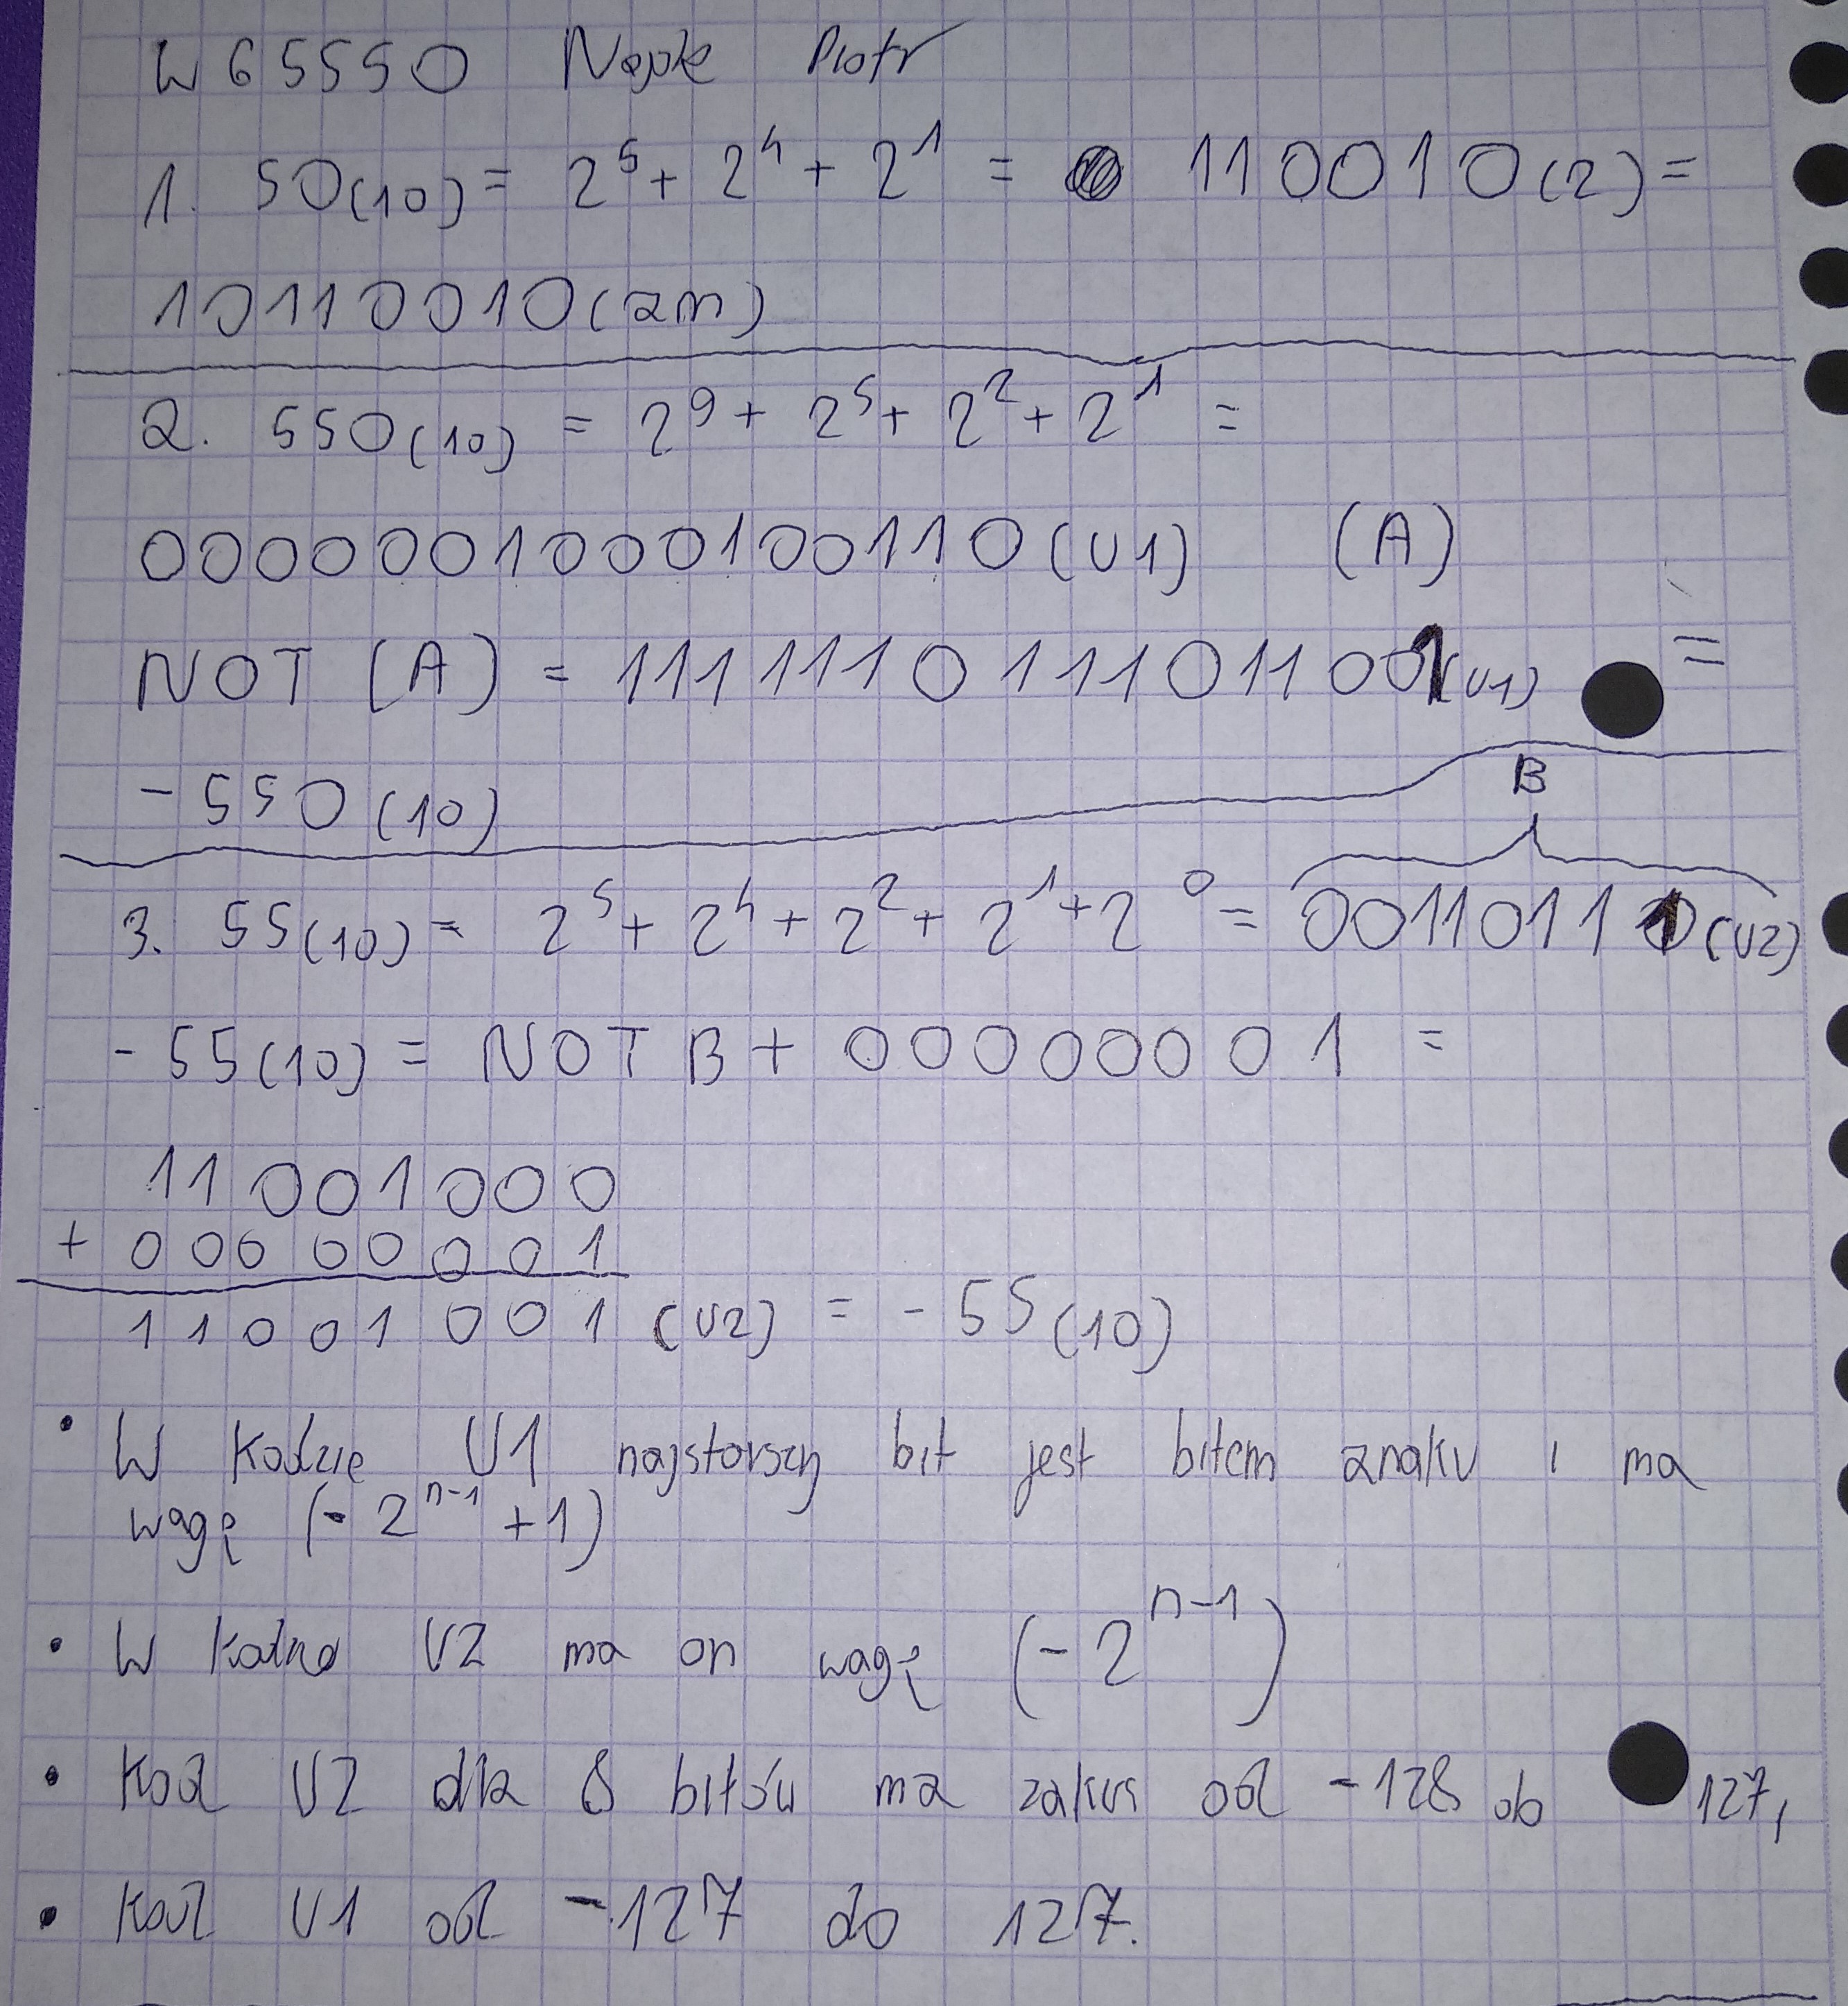 W 65550 Piotr
1. 50(10) = 2⁵ + 2⁴ + 2¹ = 110010(2) =
10110010(zm)
2. 550(10) = 2⁹ + 2⁵ + 2² + 2¹ =
0000001000100110(U1) (A)
NOT (A) = 1111110111011001(U1) =
-550(10)
B
3. 55(10) = 2⁵ + 2⁴ + 2² + 2¹ + 2⁰ = 00110111(U2)
-55(10) = NOT B + 00000001 =
11001000
+ 00000001
11001001 (U2) = -55(10)
• W kodzie U1 najstarszy bit jest bitem znaku i ma
wagę (-2ⁿ⁻¹ + 1)
• W U2 ma on wagę (-2ⁿ⁻¹)
• Kod U2 dla 8 bitów ma zakres od -128 do 127,
• Kod U1 od -127 do 127.